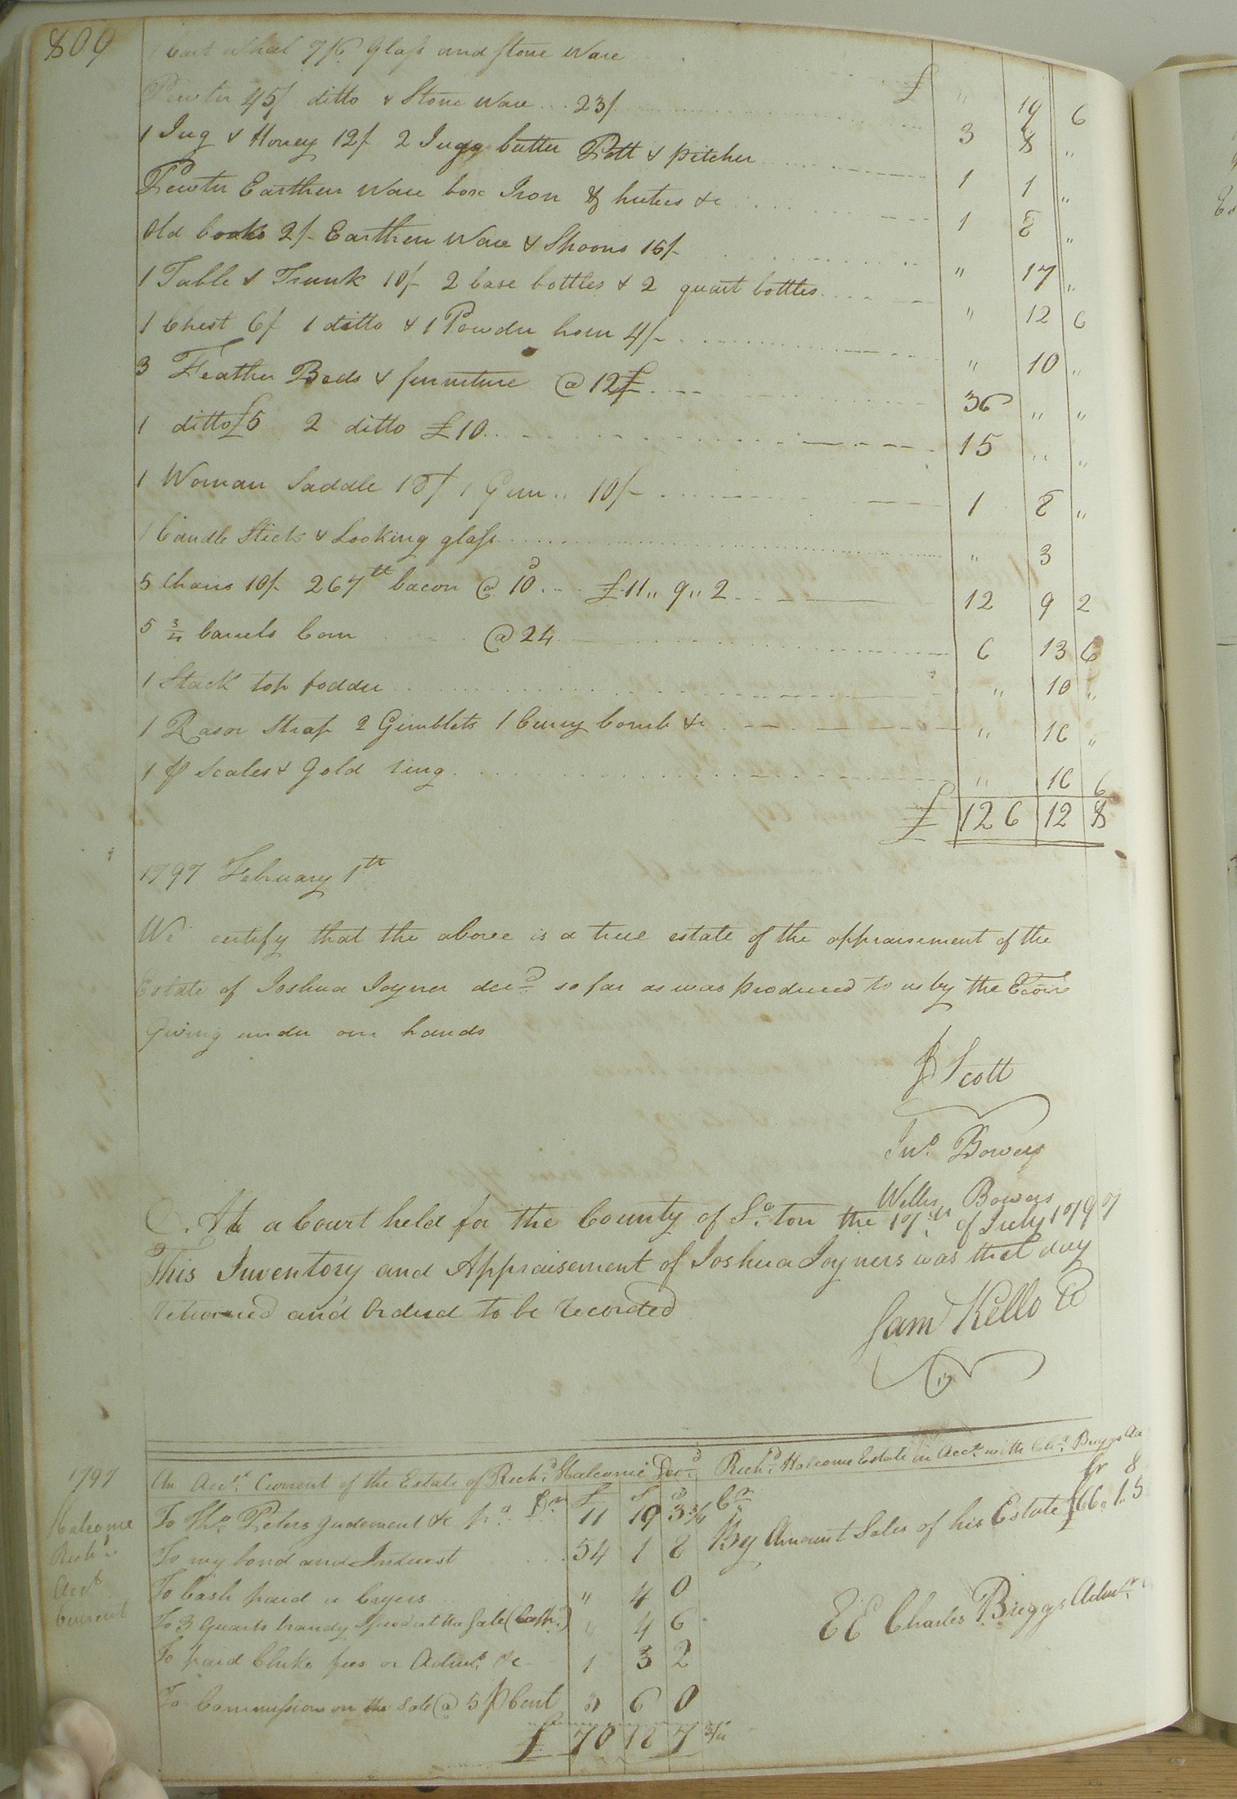 809
1 Cart wheel 7/6 Glass and stone Ware £ " 19 6
Pewter 45/ ditto & Stone ware 23/ 3 8 "
1 Jug & Honey 12/ 2 Jugg butter Pott & pitcher 1 1 "
Pewter Earthen Ware box Iron & heters &c 1 8 "
Old books 2/- Earthen Ware & Spoons 16/- " 17 "
1 Table & Trunk 10/- 2 case bottles & 2 quart bottles " 12 6
1 Chest 6/ 1 ditto & 1 Powder horn 4/- " 10 "
3 Feather Beds & furniture @ 12£ 36 " "
1 ditto £5 2 ditto £10 15 " "
1 Woman Saddle 18/ 1 Gun " 10/- 1 8 "
1 Candle Stick & Looking glass " 3
5 Chairs 10/- 267 lb bacon @ 10d £11 " 9 " 2 12 9 2
5 3/4 barrels Corn @ 24 6 13 6
1 Stack top fodder " 10 "
1 Rasor Strap 2 Gimblets 1 Curry Comb &c " 16 "
1 p Scales & Gold ring " 16 6
£ 126 12 8
1797 February 1th
We certify that the above is a true estate of the appraisement of the
Estate of Joshua Joyner decd so far as was produced to us by the Exors
Giving under our hands
J Scott
Jno. Bowers
Willis Bowers
At a Court held for the County of So.ton the 17th of July 1797
This Inventory and Appraisement of Joshua Joyners was that day
returned and Ordered to be recorded
Sam Kello C
1797
Halcome
Richd
Acct
Current
An Acct. Current of the Estate of Richd. Halcome Decd. Richd. Halcome Estate in Acct. with Chs. Briggs
Dr £ S d Cr
To Tho. Peters Judement &c 11 19 3 3/4 By Amount Sales of his Estate £66. 1. 5
To my bond and Interest 54 1 8
To Cash paid a Cryers " 4 0
To 3 Quarts brandy Used at the Sale (Cash) " 4 6
EE Charles Briggs Admr
To paid Clerks fees on Admn. &c 1 3 2
To Commission on the Sale @ 5 p Cent 3 6 0
£ 70 18 7 3/4